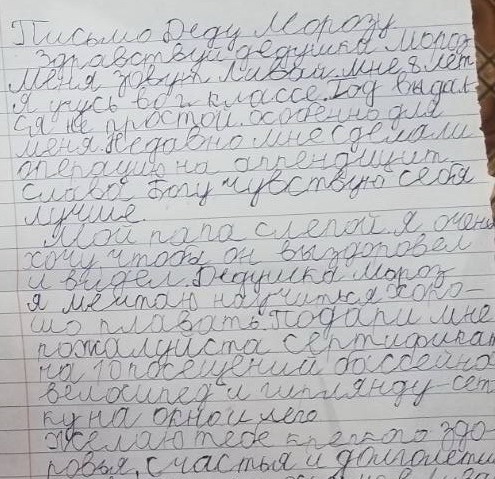 Письмо Деду Морозу
Здравствуй дедушка Мороз
меня зовут Ливай мне 8 лет
Я учусь во 2 классе. Год выдал-
ся не простой особенно для
меня. Недавно мне сделали
операцию на аппендицит
Слава богу чувствую себя
лучше.
Мой папа слепой я очень
хочу, чтобы он выздоровел
и видел. Дедушка Мороз
я мечтаю научиться хоро-
шо плавать. Подари мне
пожалуйста сертификат
на 10 посещений бассейна
велосипед и гирлянду-сет
ку на окно и лего
желаю тебе крепкого здо-
ровья, счастья и долголетия